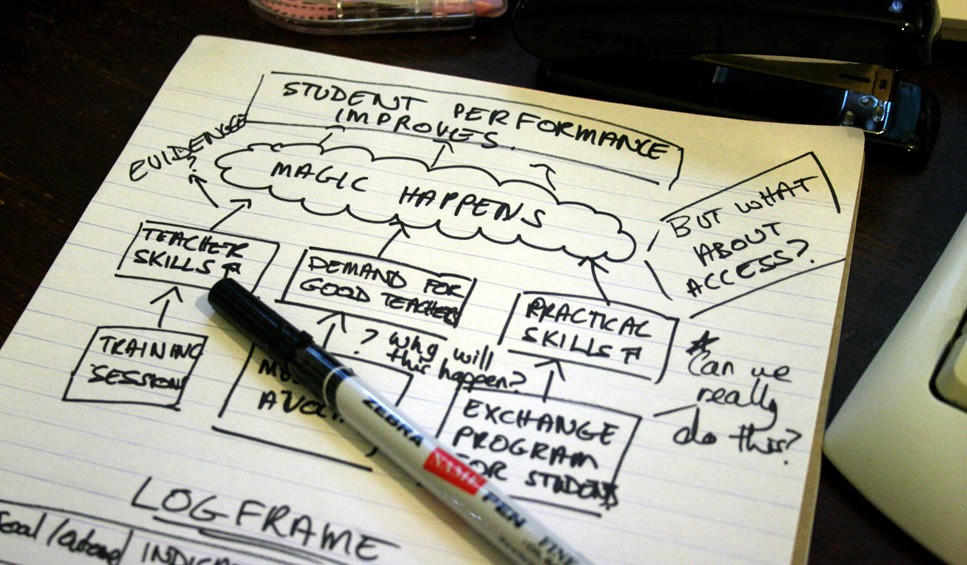 STUDENT PERFORMANCE
IMPROVES.
EVIDENCE
?
MAGIC HAPPENS
BUT WHAT
ABOUT
ACCESS?
TEACHER
SKILLS
DEMAND FOR
GOOD TEACHERS
PRACTICAL
SKILLS
TRAINING
SESSIONS
? why will
this happen?
Can we
really
do this?
EXCHANGE
PROGRAM
FOR STUDENTS
ZEBRA
NAME
PEN
LOGFRAME